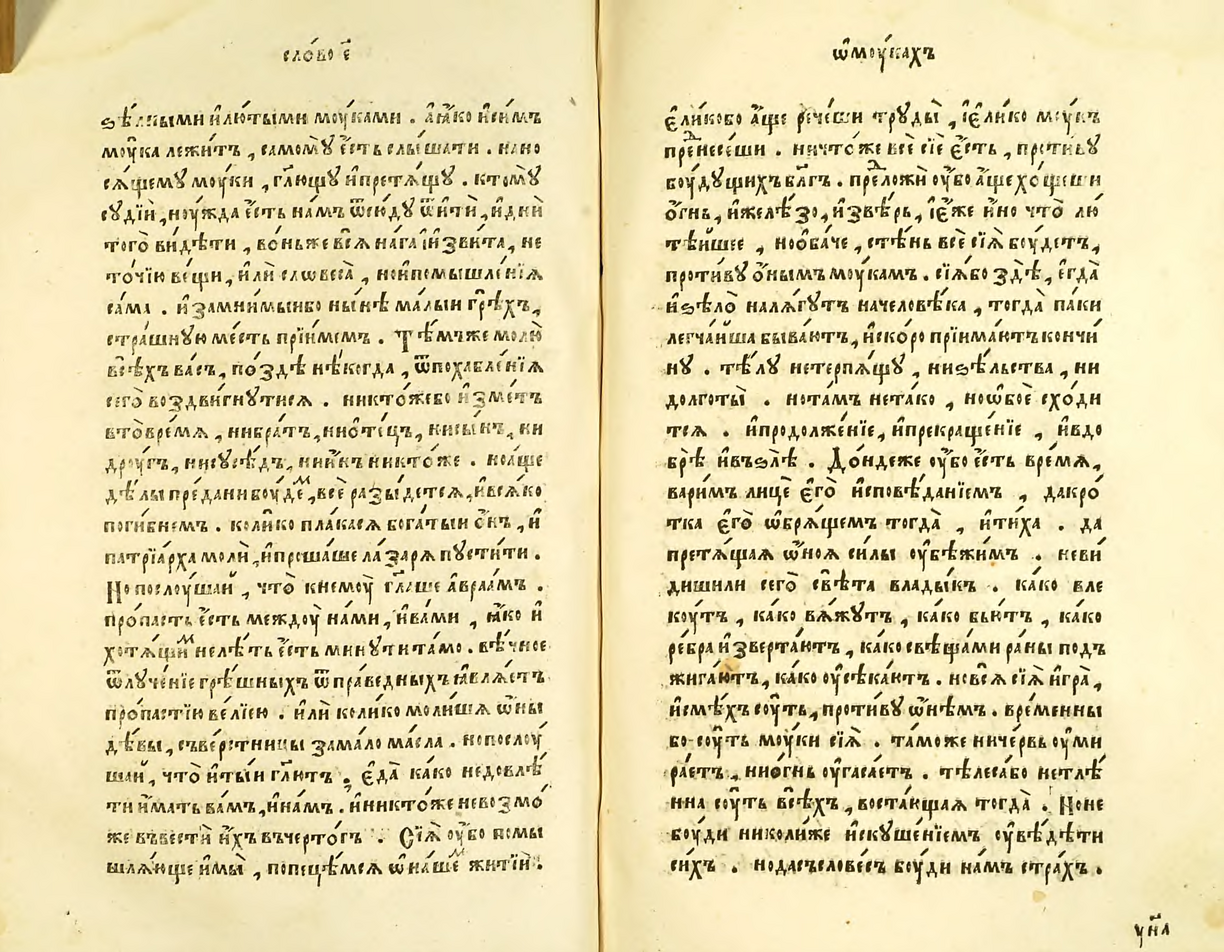 сло́во є҃
ѕѣ́лными и҆лю́тыми моу́ками . а҆ꙗ҆́ко и҆си́мъ
моу́ка лежи́тъ , самомꙋ̀ є҆́сть слы́шати . на́но
сѧ́щемꙋ моу́ки , гл҃ющꙋ и҆претѧ́щꙋ . ктомꙋ̀
сꙋдїи̑ , ноу́жда є҆́сть на́мъ ѿсю́дꙋ ѿи́ти , и҆дни̑
того̀ ви́дѣти , во́ньже всѧ̀ нага̀ и҆и҆зви́та , не
то́чїю ве́щи , и҆лѝ словеса̀ , нои҆помышле́нїѧ
сама̀ . и҆замни́мыибо ны́нѣ ма́лыи грѣ́хъ ,
стра́шнꙋю ме́сть прїи́мемъ . Тѣ́мъже молю̀
всѣ́хъ ва́съ , по́здѣ нѣ́когда , ѿпохабле́нїѧ
сего̀ воздви́гнꙋтисѧ . никто́жебо и҆́зметъ
вто̀вре́мѧ , нибра́тъ , нио҆те́цъ , нисы́нъ , ни
дрꙋ́гъ , нисꙋсѣ́дъ , нии҆́нъ никто́же .ноа҆́ще
дѣ́лы пре́дани боу́деⷨ , всѐ разы́детсѧ , и҆всѧ́ко
поги́бнемъ . коли́ко пла́касѧ бога́тыи ѻ҆́нъ , и҆
патрїа́рха молѝ , и҆проша́ше ла́зарѧ пꙋсти́ти .
Но послоу́шаи , что̀ кнемоу̀ гл҃аше а҆враа́мъ .
про́пасть є҆́сть междоу̀ на́ми , и҆ва́ми , ꙗ҆́ко и҆
хотѧ́щиⷨ нелѣ́ть є҆́сть минꙋ́ти та́мо . вѣ́чное
ѿлуче́нїе грѣ́шныхъ ѿпра́ведныхъ ꙗ҆влѧ́етъ
про́пастїю ве́лїею . и҆лѝ коли́ко моли́шѧ ѡ҆́ны
дѣ́вы , съве́рстницы зама́ло ма́сла . непослоу́
шаи , что̀ и҆ты́и гл҃ютъ . є҆да̀ ка́ко недовлѣ́
ти и҆́мать ва́мъ , и҆на́мъ . и҆никто́же невозмо́
же въвестѝ и҆́хъ въчерто́гъ . Сїѧ̀ оу҆́бо помы
шлѧ́юще и҆мы̀ , попеце́мсѧ ѡ҆на́шеⷨ житїѝ .
ѡ҆моу́кахъ
є҆ли́кобо а҆́ще рече́ши трꙋды̀ , і҆є҆ли́ко моу́къ
прⷣенесе́ши . ничто́же всѐ сїѐ є҆́сть , проти́вꙋ
боу́дꙋщихъ бл҃гъ . прⷣеложѝ оу҆́бо а҆́ще хо́щеши
ѻ҆́гнь , и҆желѣ́зо , и҆звѣ́рь , і҆є҆́же и҆́но что̀ лю
тѣ́йшее , нооба́че , стѣ́нь всѐ сїѧ̀ боу́детъ ,
проти́вꙋ ѻ҆́нымъ моу́камъ . сїѧ̀бо здѣ̀ , є҆гда̀
и҆ѕѣлѡ̀ налѧ́гутъ начеловѣ́ка , тогда̀ па́ки
легча́йша быва́ютъ , и҆ско́ро прїима́ютъ кончи́
нꙋ . тѣ́лꙋ нетерпѧ́щꙋ , ниѕѣ́льства , ни
долготы̀ . нота́мъ нета́ко , ноѡ҆боѐ схо́ди
тсѧ . и҆продолже́нїе , и҆прекраще́нїе , и҆вдо
брѣ̀ и҆въѕлѣ̀ . До́ндеже оу҆́бо є҆́сть вре́мѧ ,
вари́мъ лицѐ є҆гѡ̀ и҆сповѣ́данїемъ , дакро́
тка є҆гѡ̀ ѡ҆брѧ́щемъ тогда̀ , и҆ти́ха . да
претѧ́щаѧ ѡ҆́ноѧ си́лы оу҆бѣжи́мъ . неви́
дишили сего̀ свѣ́та влады́къ . ка́ко вле
коу́тъ , ка́ко вѧ́жутъ , ка́ко бью́тъ , ка́ко
ре́бра и҆зверта́ютъ , ка́ко свѣща́ми ра́ны подъ
жига́ютъ , ка́ко оу҆сѣка́ютъ . новсѧ̀ сїѧ̀ и҆гра̀ ,
и҆смѣ́хъ соу́ть , проти́вꙋ ѡ҆нѣ́мъ . вре́менны
бо соу́ть моу́ки сїѧ̀ . та́може ниче́рвь оу҆ми
ра́етъ , нио҆́гнь оу҆гаса́етъ . тѣлеса́бо нетлѣ́
нна соу́ть всѣ́хъ , воста́ющаѧ тогда̀ . Ноне
боу́ди николи́же и҆скꙋше́нїемъ оу҆вѣ́дѣти
си́хъ . нодасъслове́съ боу́ди на́мъ стра́хъ .